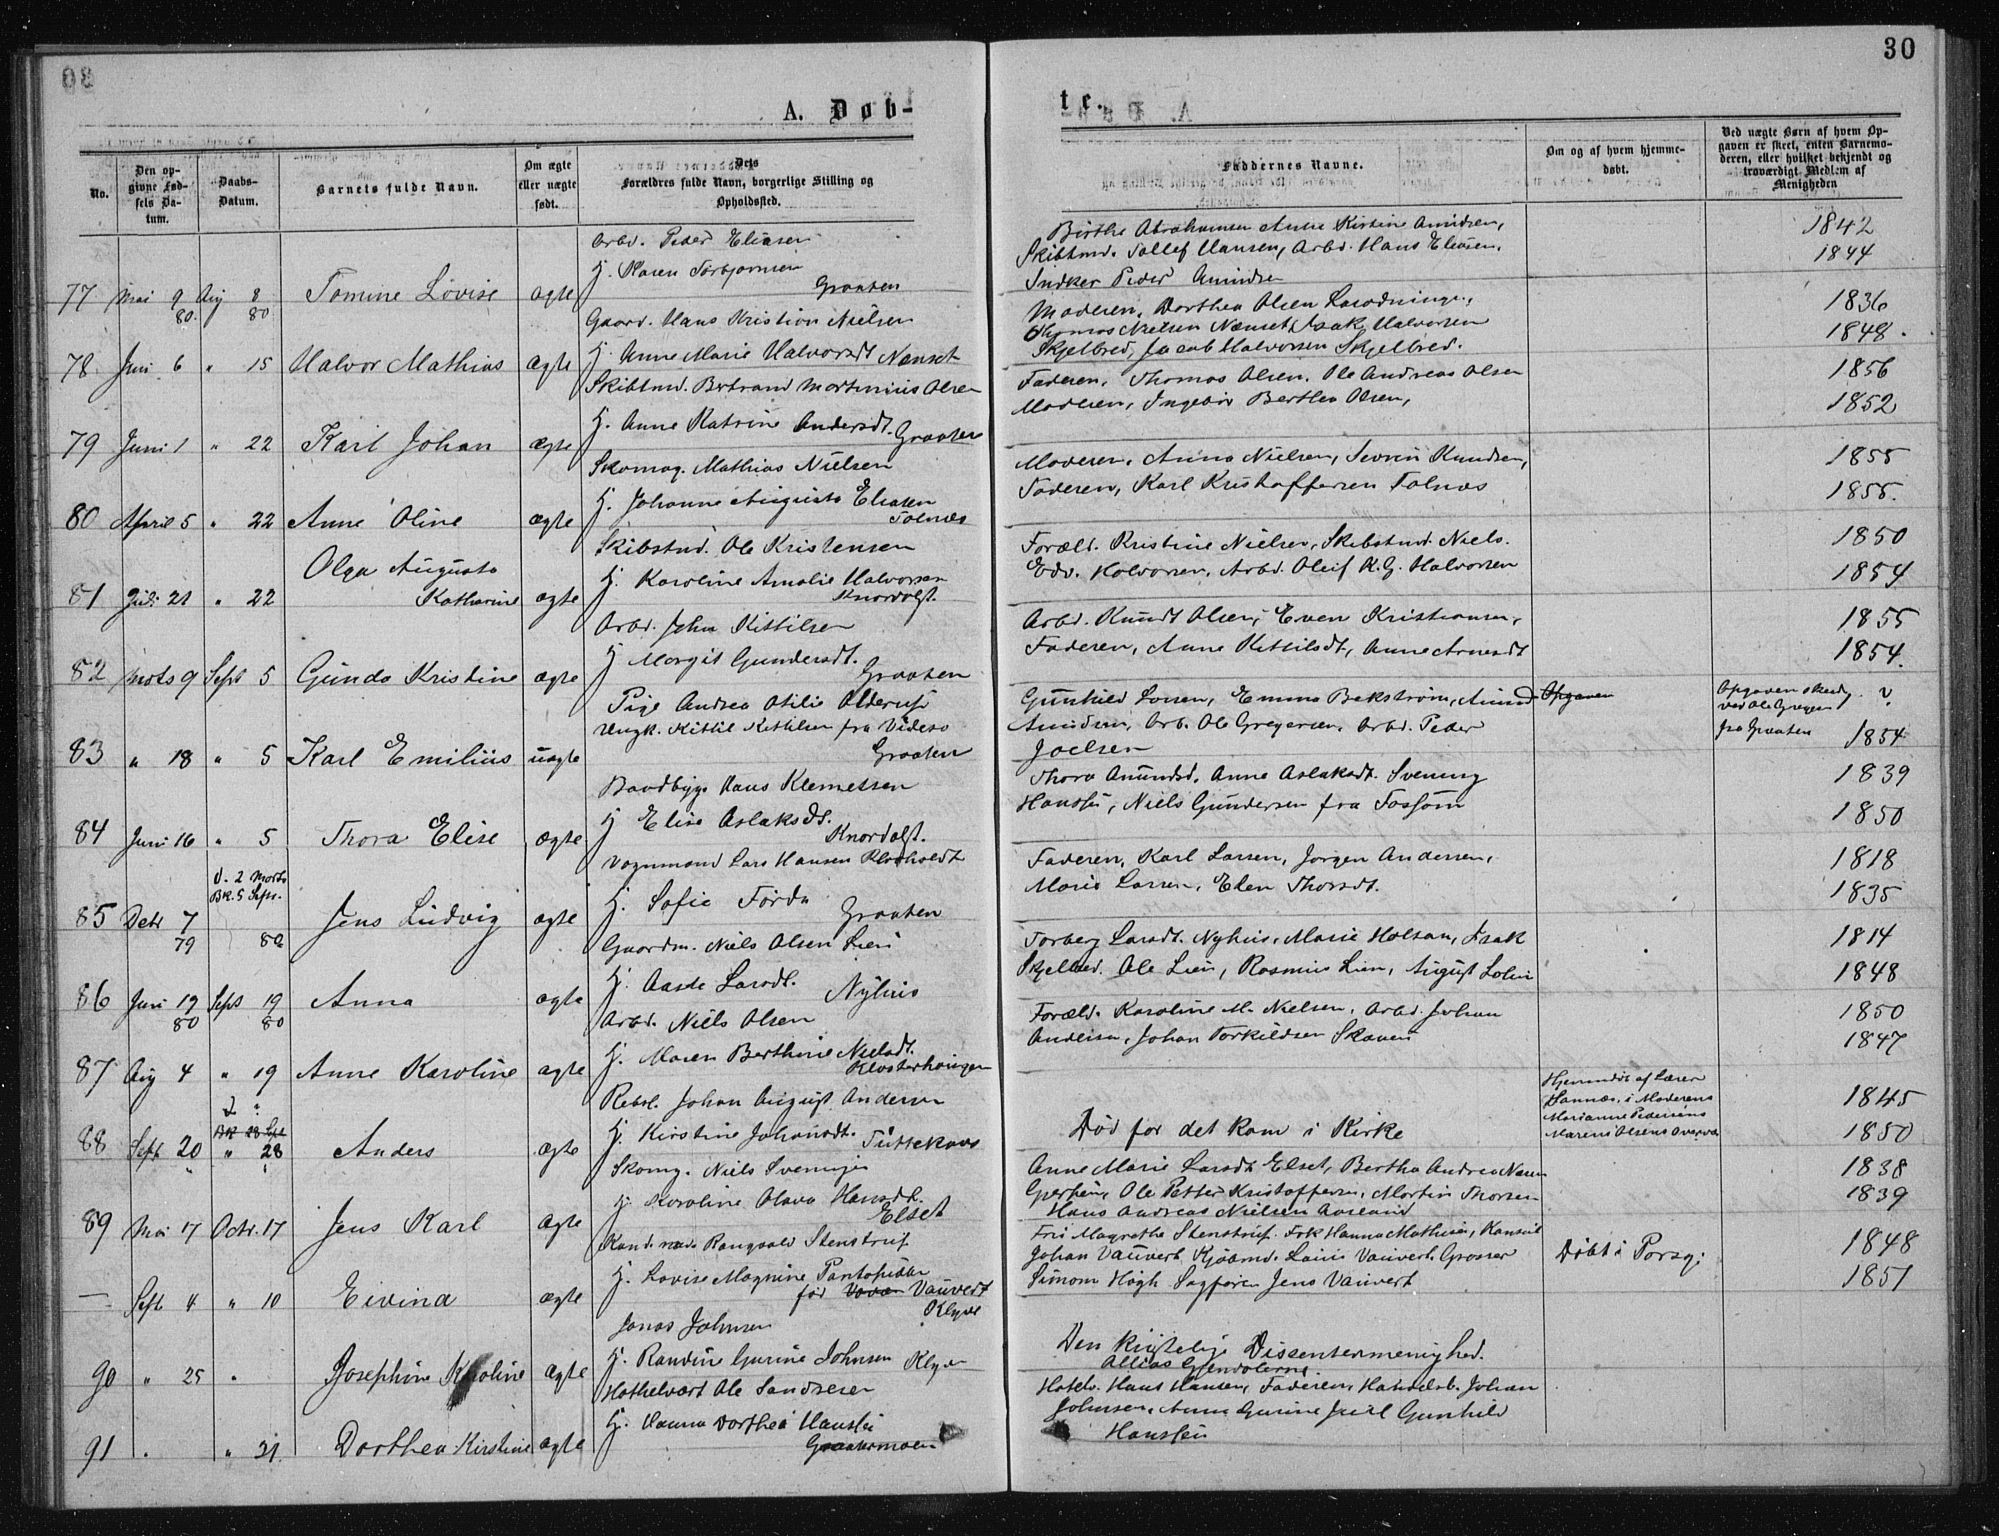 30
A. Døb-
te.
No.
Den opgivne Fødsels Datum.
Daabs-Datum.
Barnets fulde Navn.
Om ægte eller uægte født.
Dets Forældres fulde Navn, borgerlige Stilling og Opholdssted.
Faddernes Navne.
Om og af hvem hjemmedøbt.
Ved uægte Børn af hvem Opgaven er skeet, enten Barnemoderen, eller hvilket bekjendt og troværdigt Medlem af Menigheden
Arbd. Peder Eliasen
H. Karen Torbjørnsen
77 Mai 9 80. Aug 8 80 Tomine Lovise ægte Graaten
Birthe Abrahamsen Anne Kirstine Amundsen,
Skibtmd. Tollef Hansen, Arbd. Hans Eliasen.
Inderst Peder Amundsen
1842
1844
Gaard. Hans Kristian Nielsen
78 Juni 6 " 15 Halvor Mathias ægte H. Anne Marie Halvorsdt Nenset
Moderen, Dorthea Olsen
Thomas Nielsen Nænset, Isak Halvorsen
Skjelbred, Jacob Halvorsen Skjelbred.
1836
1848.
Skibtmd. Bertrand Martinius Olsen
H. Anne Katrine Andersdt. Graaten
79 Juni 1 " 22 Karl Johan ægte
Faderen, Thomas Olsen, Ole Andreas Olsen
Moderen, Ingebor Berthea Olsen,
1856
1852
Skomag. Mathias Nielsen
H. Johanne Augusta Eliasen
80 April 5 " 22 Anne Oline ægte Tolnæs
Moderen, Anna Nielsen, Severin Knudsen,
Faderen, Karl Kristoffersen Tolnæs
1855
1855.
Skibstmd. Ole Kristensen
H. Karoline Amalie Halvorsen
81 Juli 21 " 22 Olga Augusta Katharine ægte Knardalst.
Foræld. Kristine Nielsen, Skibstmd Niels.
Edv. Halvorsen, Arbd. Oluf K. G. Halvorsen
1850
1854
Arbd. John Kittilsen
H Margit Gundersdt.
82 Marts 9 Sept 5 Gunda Kristine ægte Graaten
Arbd. Knudt Olsen, Even Kristiansen,
Faderen, Anne Kittilsdt, Anne Arnesdt
1855
1854.
Pige Andrea Otilie
Ungk. Kittil Kittilsen fra Videsø
83 " 18 " 5 Karl Emilius uægte Graaten
Gunhild Larsen, Emma Bekstrøm, Amund
Amundsen, Arb. Ole Gregersen, Arbd. Peder
Joelsen
Opgaven
Opgaven skeedt
ved Ole Gregersen
fra Graaten
?
1854
Baadbyg. Hans Klemetsen
H Elise Aslaksdt.
84 Juni 16 " 5 Thora Elise ægte Knardalst.
Thora Amundsd. Anne Aslaksdt. Svenung
Hansen, Niels Gundersen fra Fossum
1839
1850
Vognmand Lars Hansen
H. Sofie
85 Decbr 7 79 d. 2 Marts Bk. 5 Sept. 80 Jens Ludvig ægte Graaten
Faderen, Karl Larsen, Jørgen Andersen,
Marie Larsen, Elen Thorsdt.
1818
1835
Gaardm. Niels Olsen Lien
H. Aaste Larsdt.
86 Juni 19 80 Sept 19 80 Anna ægte Nyhus
Torberg Larsdt. Nyhus, Marie Holtan, Isak
Skjelbred. Ole Lien, Rasmus Lien, August
1814
1848
Arbd. Niels Olsen
H. Maren Berthine Nielsdt.
87 Aug 4 " 19 Anne Karoline ægte Klosterhaugen
Foræld. Karoline M. Nielsen, Arbd Johan
Andersen, Johan Torkildsen Skaven
1850
1847
Rebsl. Johan August Andersen
H. Kirstine Johansdt. Tuttekaas
88 Sept 20 " 28 Anders ægte
Død før det kom i Kirke
Hjemmedøbt af Lærer
Hannæs, i Moderens
Marianne Pedersens
Maren Olsens
1845
1850
Skomg. Niels Svenungsen
H Karoline Olava Hansdt.
89 Mai 17 Octr. 17 Jens Karl ægte Elset
Anne Marie Larsdt Elset, Bertha Andrea
Ole Petter Kristoffersen, Martin Thorsen
Hans Andreas Nielsen
1838
1839
Kand. Rangvald Stenstrup
H. Lovise Magnine Pantopidan
— Sept 4 " 10 Eivind ægte fød Vauvert Klyve
Fru Magrethe Stenstrup. Frk Hanna Mathisen, Konsul
Johan Vauvert Kjøbmd. Vauvert. Grosser
Simon Høgh Sagfører Jens Vauvert
Døbt i Porsg.
1848
1851
Jonas Johnsen
H. Randine Gurine Johnsen Klyve
90 " 25 " Josephine Karoline ægte
Den Kristelige Dissentermenighed.
Hotelvært Ole Sandersen
H. Hanna Dorthea Hansen
91 " " 31 Dorthea Kirstine ægte Graatenmoen
Hotelv. Hans Hansen, Faderen, Handelsb. Johan
Johnsen, Anne Gurine Juel Gunhild
Hansen